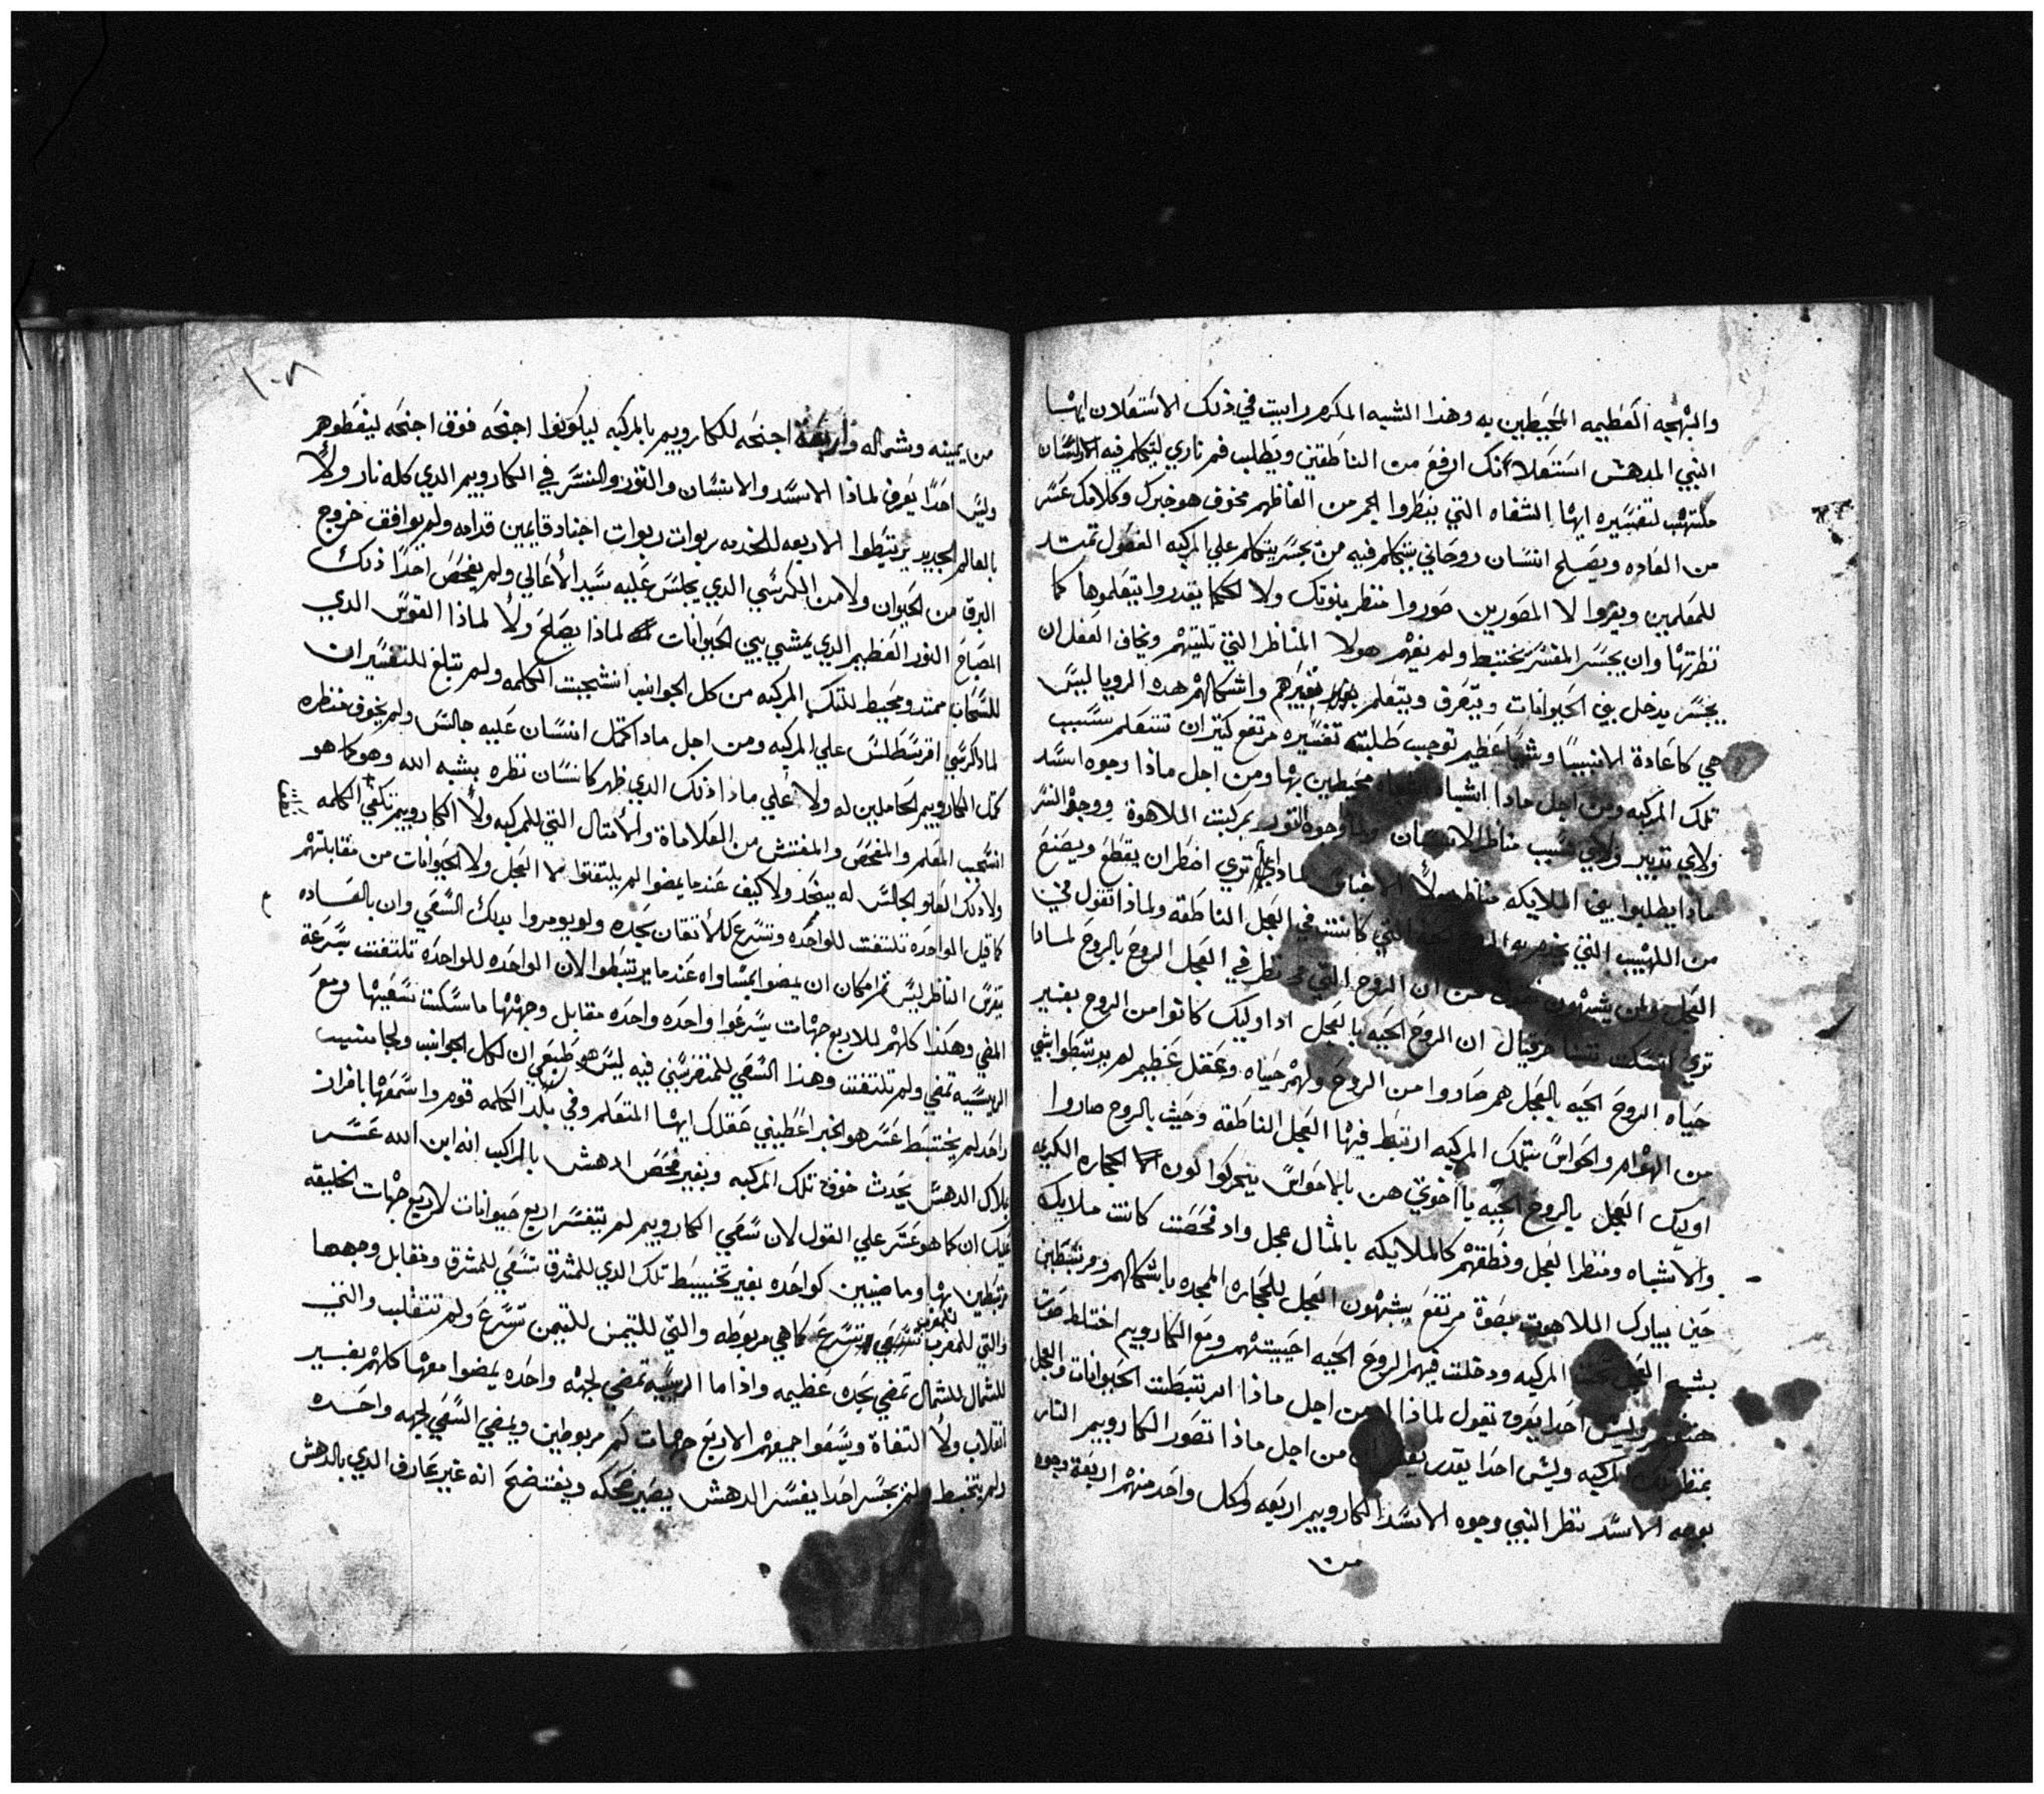 والبهجه العظيمه المحيطين به وهذا الشبه المكرم رايت في ذلك الاستعلان ايها
النبي المدهش استعلانك ارفع من الناطقين ويطلب فم ناري ليتكلم فيه الانسان
ملتهب لتفسيره ايها الشفاه التي ينظروا الجمر من الفاظهم مخوف هو خبرك وكلامك عسر
من العاده ويصلح انسان روحاني يتكلم فيه من يجسر يتكلم علي المركبه العقول تمتد
للمعلمين ويفروا لا المصورين صوروا منظر بنوتك ولا الحكما يقدروا يتعلموها كما
نظرتها وان يجسر المفسر يختبط ولم يفهم هولا المناظر التي تليتهم ويخاف العقل ان
يجسر يدخل بين الحيوانات ويتعرف ويتعلم تغيرهم واشكالهم هده الرويا ليس
هي كعادة الانبيا وشيا عظيم توجب طلبته تفسيره مرتفع كتير ان تتعلم سبب
تلك المركبه ومن اجل مادا اشباه محيطين بها ومن اجل ماذا وجوه اسد
ولاي تدبير ولاي سبب مناظر الانسان ولما وجوه التور بمركبت الملاهوة ووجوه النسر
مادا يطلبوا بين الملايكه تري اضطر ان يقطع ويصنع
من اللهيب التي كانت في العجل الناطقه ولماذا تقول في
العجل ولمن يشبهون ان الروح التي نظر في العجل الروح بالروح لمادا
تري حزقيال ان الروح الحيه بالعجل ادا اوليك كانوا من الروح بغير
حياه الروح الحيه بالعجل هم صاروا من الروح ولهم حياه وعقل عظيم لم يرتبطوا بشي
من الهوام والحواس بتلك المركبه ارتبط فيها العجل الناطقه وحيث بالروح صاروا
اوليك العجل بالروح الحيه يا اخوتي هن بالاحواس يتحركوا لون الحجاره الكريمه
والاشباه ومنظر العجل ونطقهم كالملايكه بالمثال عجل واد فحصت كانت ملايكه
حين يبارك الملاهوت بصوة مرتفع يشبهون العجل للحجاره الممجده باشكالهم ومرتبطين
بشبه العجل تحت المركبه ودخلت فيهم الروح الحيه احييتهم ومع الكاروبيم اختلط صوت
وليس احدا يعرف تقول لماذا من اجل ماذا ارتبطت الحيوانات والعجل
بمنظر تلك المركبه وليس احدا يقدر من اجل ماذا تصور الكاروبيم النار
بوجه الاسد نظر النبي وجوه الاسد الكاروبيم اربعه ولكل واحد منهم اربعة وجوه
من
١٠٨
من يمينه وشماله واربعة اجنحه للكاروبيم بالمركبه ليكونوا اجنحه فوق اجنحه ليغطوهم
وليس احدًا يعرف لماذا الاسد والانسان والتور والنسر في الكاروبيم الدي كله نار ولا
بالعالم الجديد يرتبطوا الاربعه للخدمه ربوات ربوات اجناد قايمين قدامه ولم يوافق خروج
البرق من الحيوان ولا من الكرسي الدي يجلس عليه سيد الأعالي ولم يفحص احدًا ذلك
المصباح النور العظيم الدي يمشي بين الحيوانات لماذا يصلح ولا لماذا القوس الدي
للسحاب ممتد ومحيط لتلك المركبه من كل الجوانب انسجبت الكلمه ولم تبلغ للتفسير ان
لماذا كرسي اقرسطلس علي المركبه ومن اجل مادا كمتل انسان عليه جالس ولم يخوف منظره
كمتل الكاروبيم الحاملين له ولا علي ماذا ذلك الدي ظهر كانسان نظره بشبه الله وهو كما هو
انسجب المعلم والمفحص والمفتش من العلاماة والأمتال التي للمركبه ولا الكاروبيم تكفي الكلمه
ولا ذلك العلو الجالس له يبجد ولا كيف عندما يمضوا لم يلتفتوا لا العجل ولا الحيوانات من مقابلتهم
كما قيل الواحده تلتفت للواحده وتسرع كالأتقان بحده ولو يومروا بدلك السعي وان بالعاده
يتفرس الناظر ليس تم امكان ان يمضوا بمساواه عندما يرتبطوا لان الواحده للواحده تلتفت بسرعة
المضي وهكذا كلهم للاربع جهات يسرعوا واحده واحده مقابل وجهتها ما سكنت سعيها ومع
الرييسيه تمضي ولم تلتفت وهذا السعي للمتفرسين فيه ليس هو طبيعي ان لكل الجوانب ولجانب
واحد لم يختبط عسر هو الخبر اعطيني عقلك ايها المتعلم وفي بلد الكلمه قوم واسمعها بافراز
بلاك الدهش يحدث خوف تلك المركبه وبغير فحص ادهش بالمراكب انه ابن الله عسر
عليك ان كما هو عسر علي القول لان سعي الكاروبيم لم يتفسر اربع حيوانات لاربع جهات الخليقه
مرتبطين بها وماضيين كواحده بغير تخبيط تلك الدي للمشرق تسعي للمشرق ومقابل وجهها
والتي للمغرب للمغرب تسرع كما هي مربوطه والتي للتيمن للتيمن تسرع ولم تتقلب والتي
للشمال للشمال تمضي بحده عظيمه واذا ما الرييسيه تمضي لجهه واحده يمضوا معها كلهم بغير
انقلاب ولا التفاة ويسعوا جميعهم الاربع جهات كم مربوطين ويمضي السعي لجهه واحده
ولم يتخبط ولن يجسر احدا يفسر الدهش يصير ضحكه ويفتضح انه غير عارف الدي بالدهش